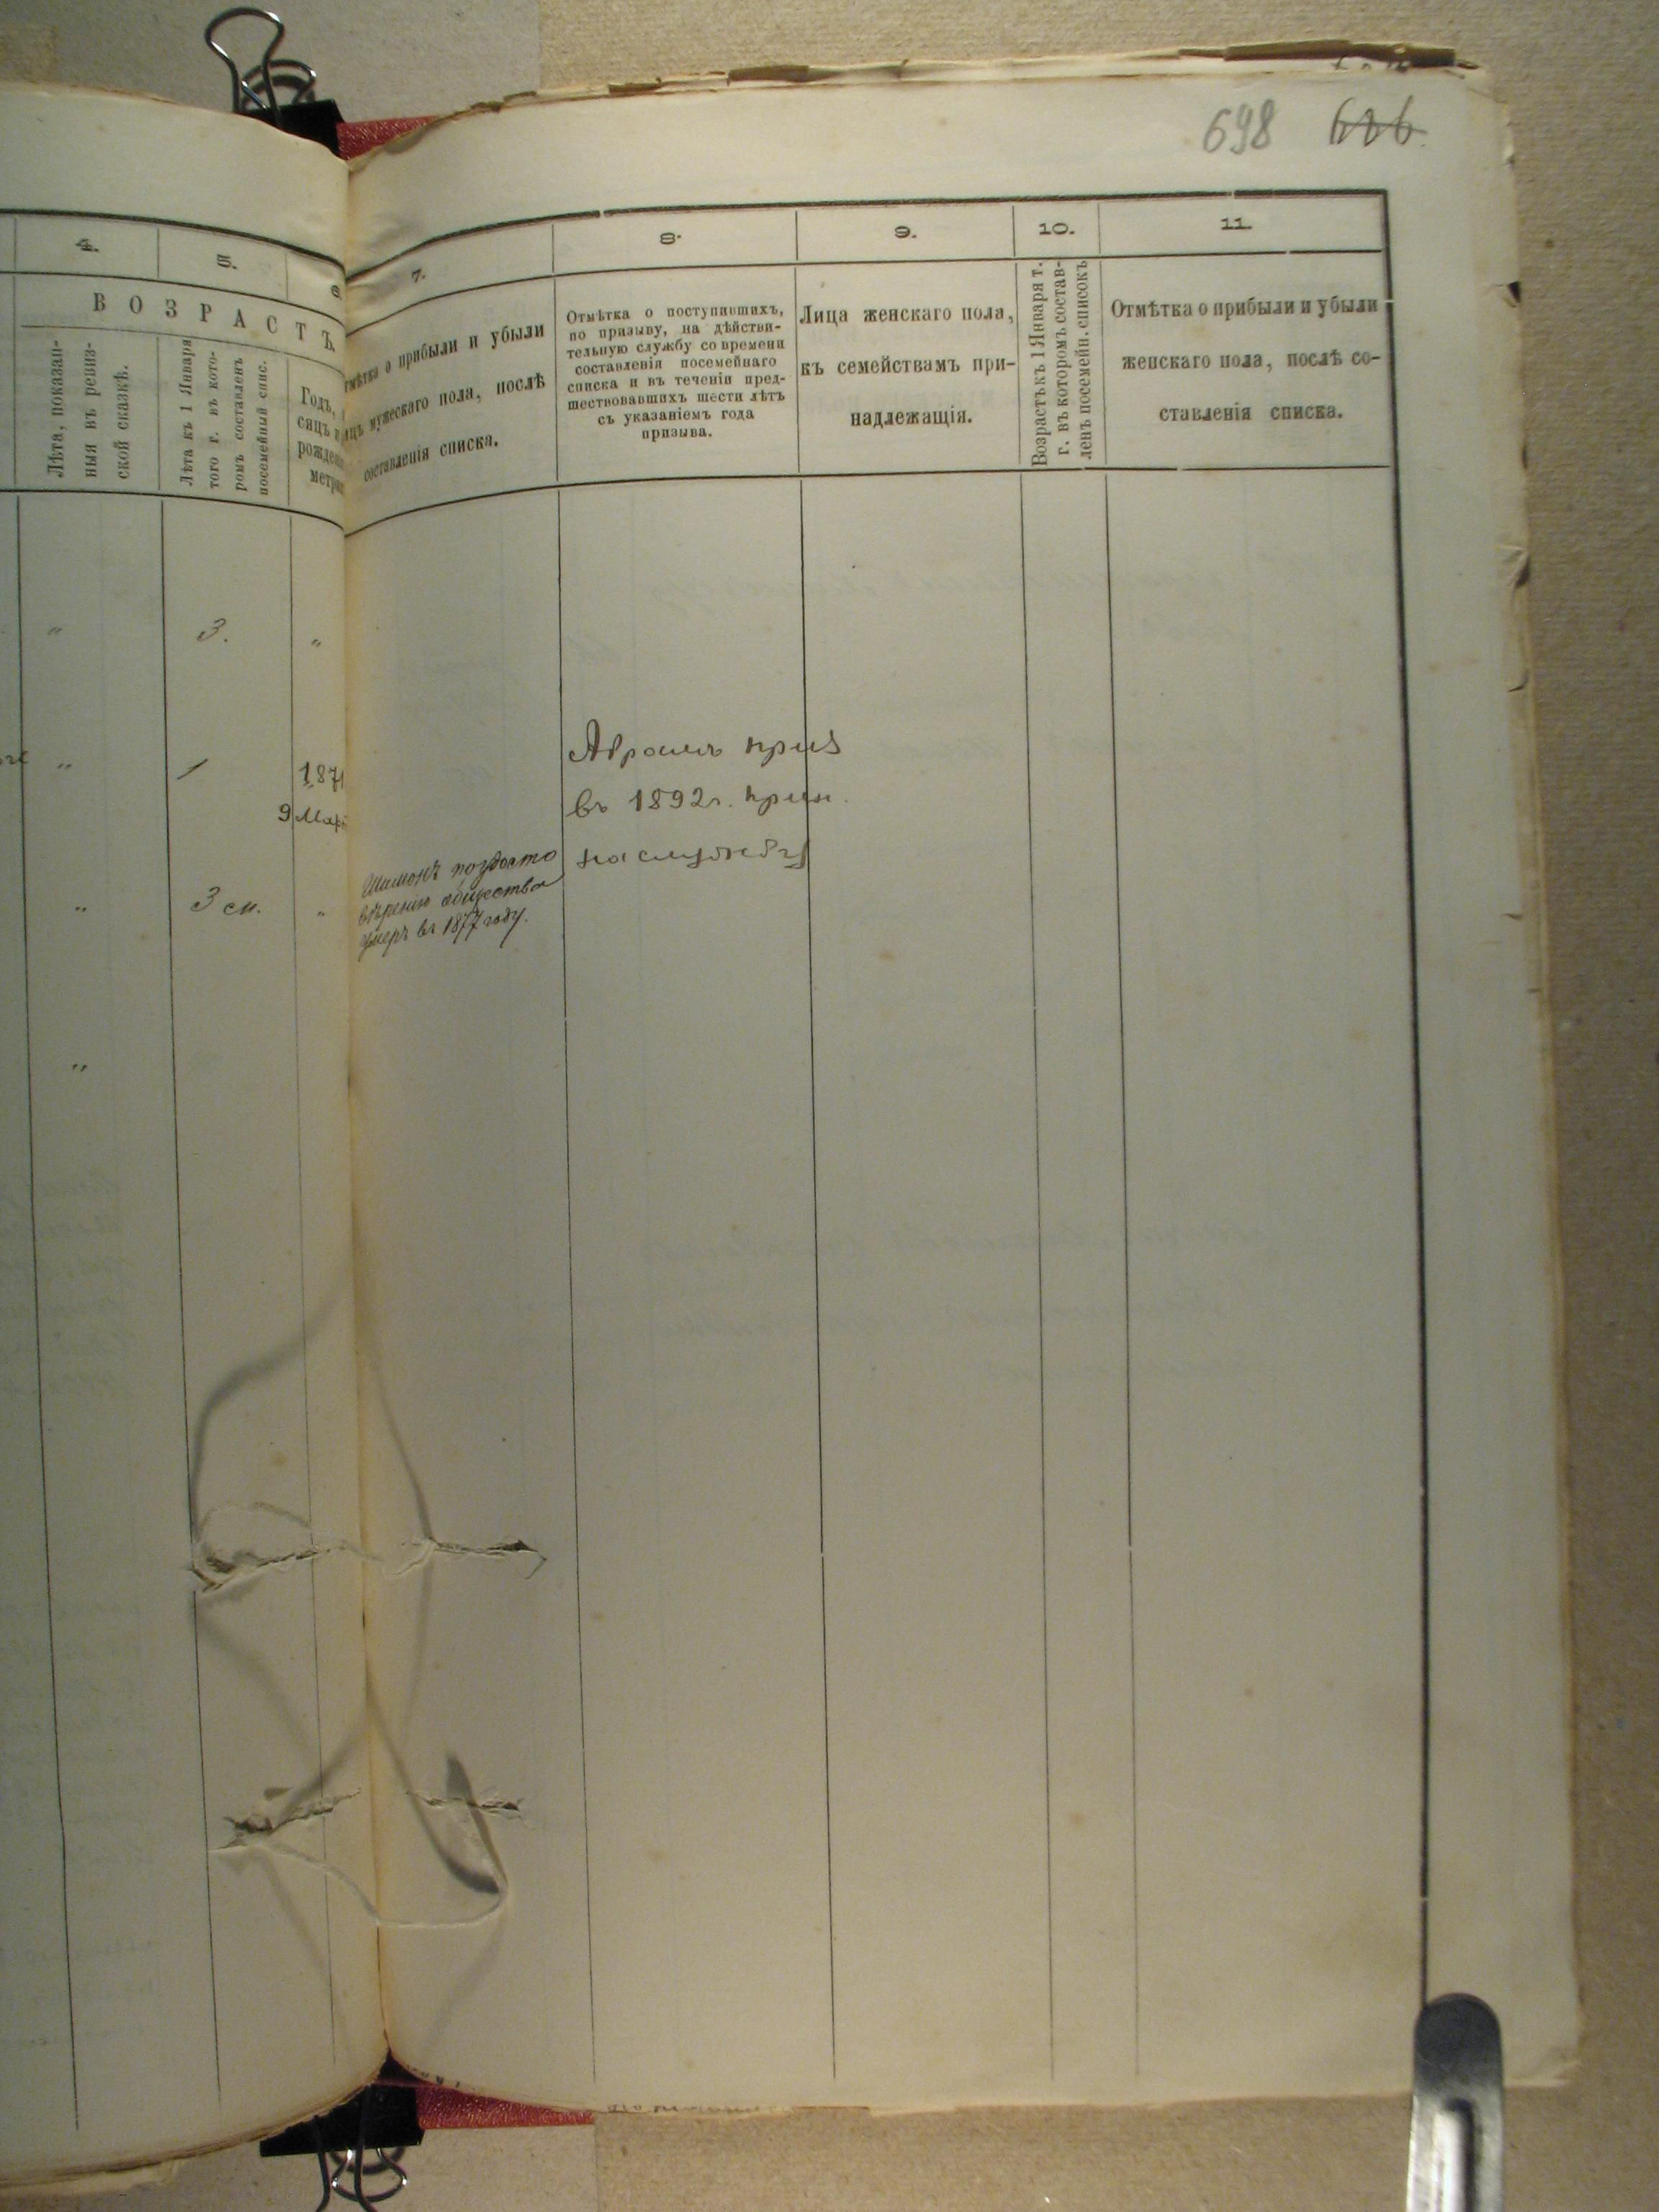 698 686
4.
5.
6
ВОЗРАСТЪ.
Лѣта, показан-
ныя въ ревиз-
ской сказкѣ.
Лѣта къ 1 Января
того г. въ кото-
ромъ составленъ
посемейный спис.
Годъ,
сяцъ и
рожден
метри
7.
мѣтка о прибыли и убыли
ицъ мужескаго пола, послѣ
составленія списка.
8.
Отмѣтка о поступившихъ,
по призыву, на дѣйстви-
тельную службу со времени
составленія посемейнаго
списка и въ теченіи пред-
шествовавшихъ шести лѣтъ
съ указаніемъ года
призыва.
9.
Лица женскаго пола,
къ семействамъ при-
надлежащія.
10.
Возрастъ къ 1 Января т.
г. въ которомъ состав-
ленъ посемейн. списокъ
11.
Отмѣтка о прибыли и убыли
женскаго пола, послѣ со-
ставленія списка.
" 3. "
" 1 1871
9 Мар
" 3 см. "
"
Шимонъ по удосто
вѣренію общества
умеръ въ 1877 году.
Абрамъ приз
въ 1892 г. прин.
на службу